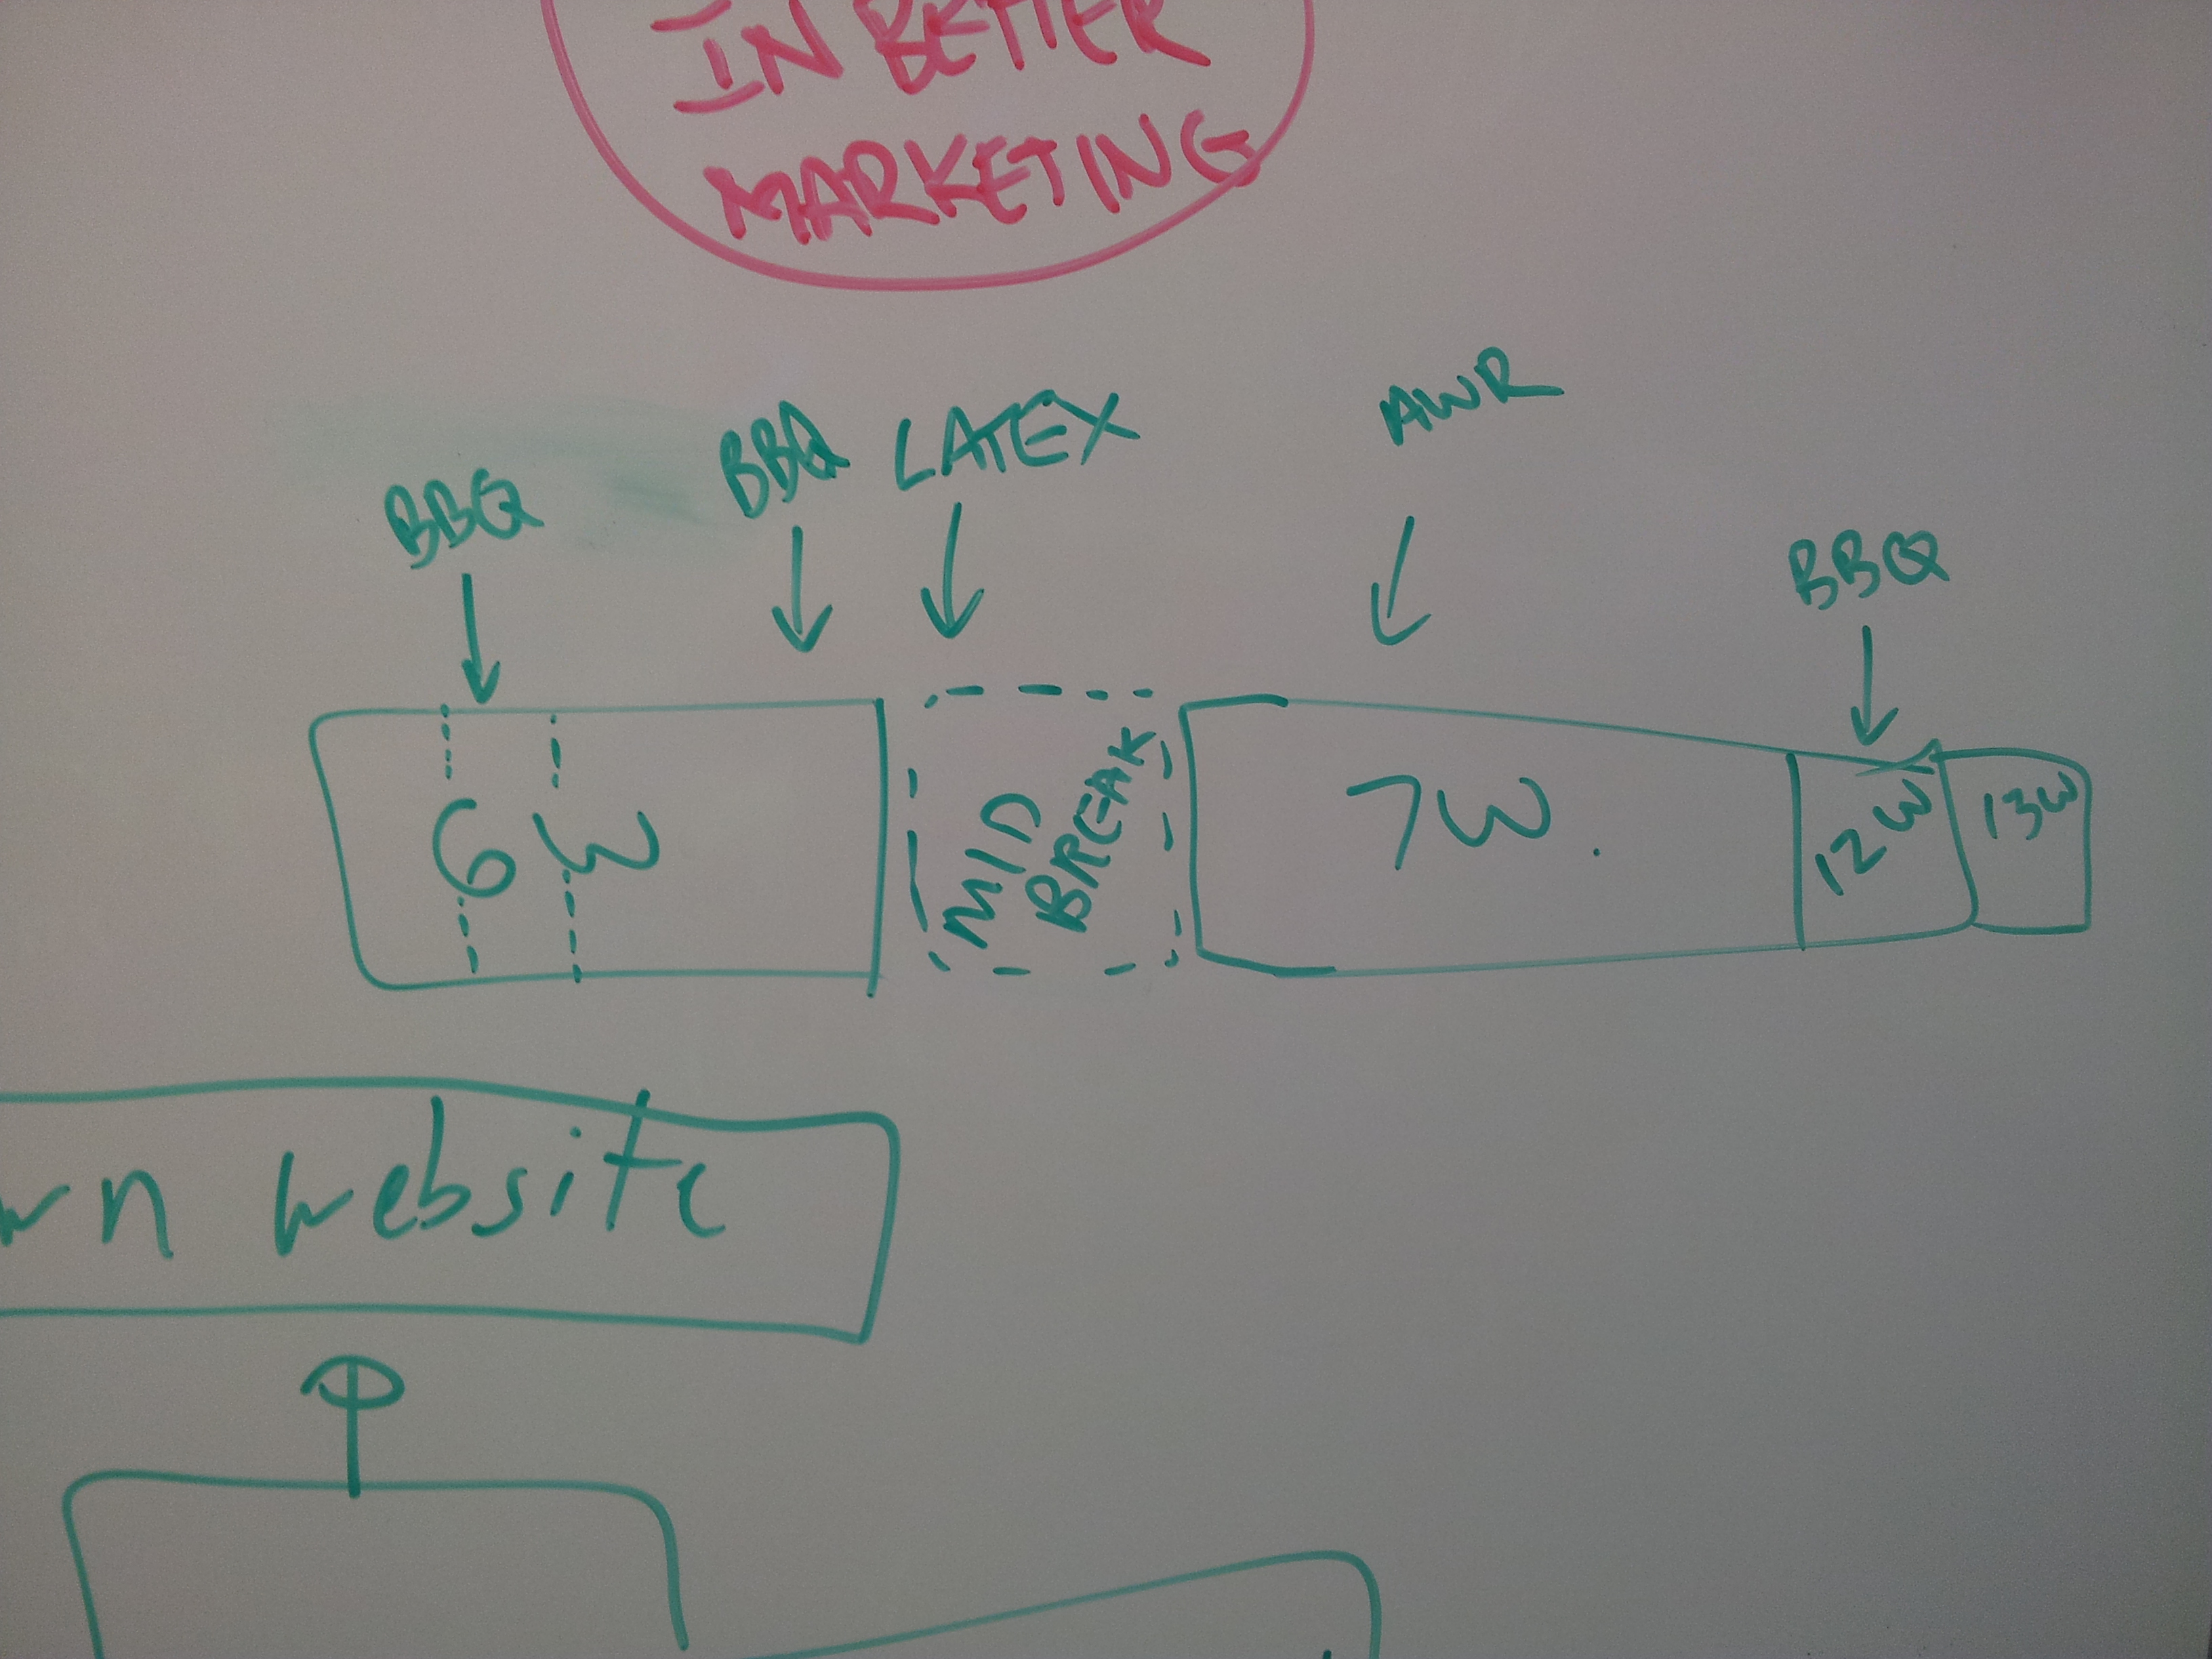 IN BETTER
MARKETING
BBQ BBQ LATEX AWR BBQ
6W MID BREAK 7W. 12W 13W
wn website